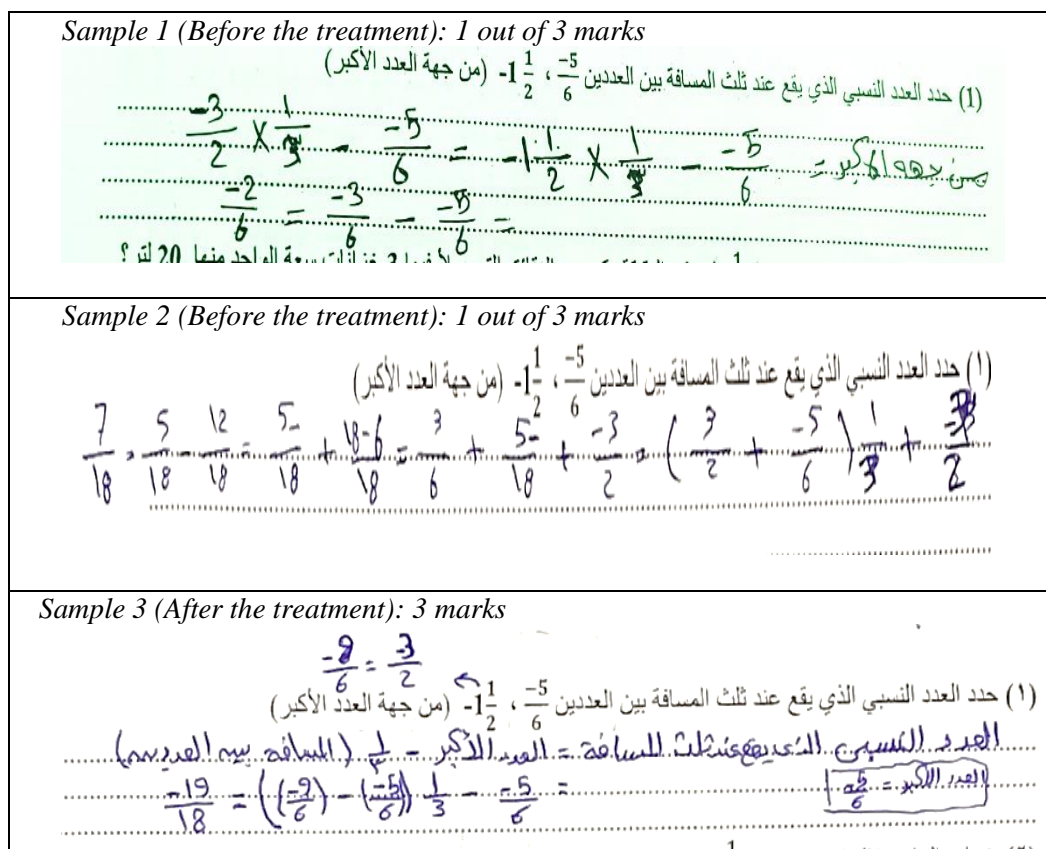 Sample 1 (Before the treatment): 1 out of 3 marks
(1) حدد العدد النسبي الذي يقع عند ثلث المسافة بين العددين -5/6 ، -1 1/2 (من جهة العدد الأكبر)
من جهة الأكبر = -5/6 - 1/3 × -1 1/2 = -5/6 - 1/3 × -3/2
= -5/6 - -3/6 = -2/6
20 لتر ؟
Sample 2 (Before the treatment): 1 out of 3 marks
(١) حدد العدد النسبي الذي يقع عند ثلث المسافة بين العددين -5/6 ، -1 1/2 (من جهة العدد الأكبر)
-3/2 + 1/3 (-5/6 + 3/2) = -3/2 + 5-/18 + 3/6 = 18-6/18 + 5-/18 = 12/18 - 5/18 = 7/18
Sample 3 (After the treatment): 3 marks
-9/6 = -3/2
(١) حدد العدد النسبي الذي يقع عند ثلث المسافة بين العددين -5/6 ، -1 1/2 (من جهة العدد الأكبر)
العدد النسبي الذي يقع عند ثلث المسافة = العدد الأكبر - 1/3 (المسافة بين العددين)
العدد الأكبر = -5/6
= -5/6 - 1/3 ((-5/6) - (-9/6)) = -19/18